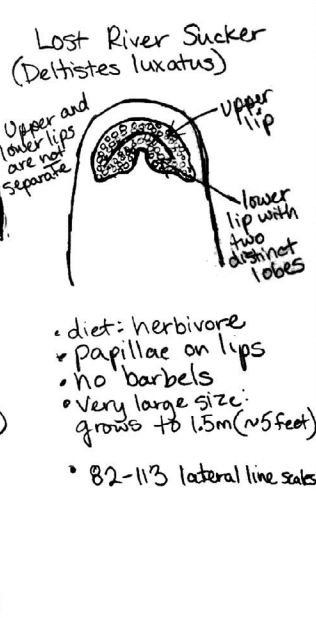 Lost River Sucker
(Deltistes luxatus)
Upper and
lower lips
are not
separate
upper
lip
lower
lip with
two
distinct
lobes
• diet: herbivore
• papillae on lips
• no barbels
• very large size:
grows to 1.5m (~5feet)
• 82-113 lateral line scales